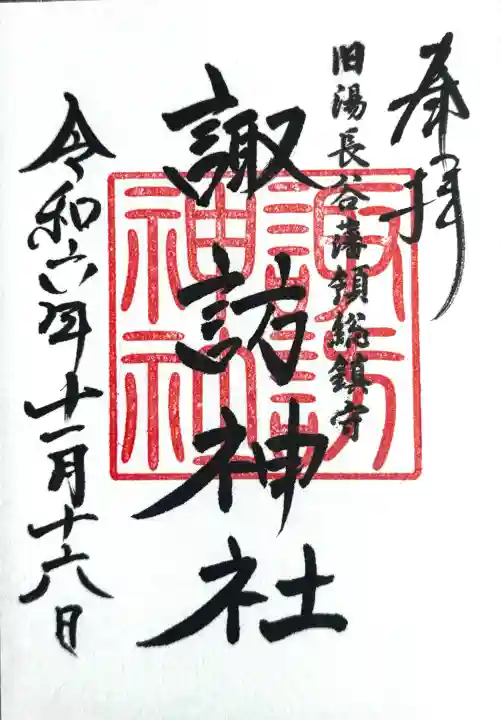 奉拝
旧湯長谷藩領総鎮守
諏訪神社
諏訪
神社
令和六年十一月十六日